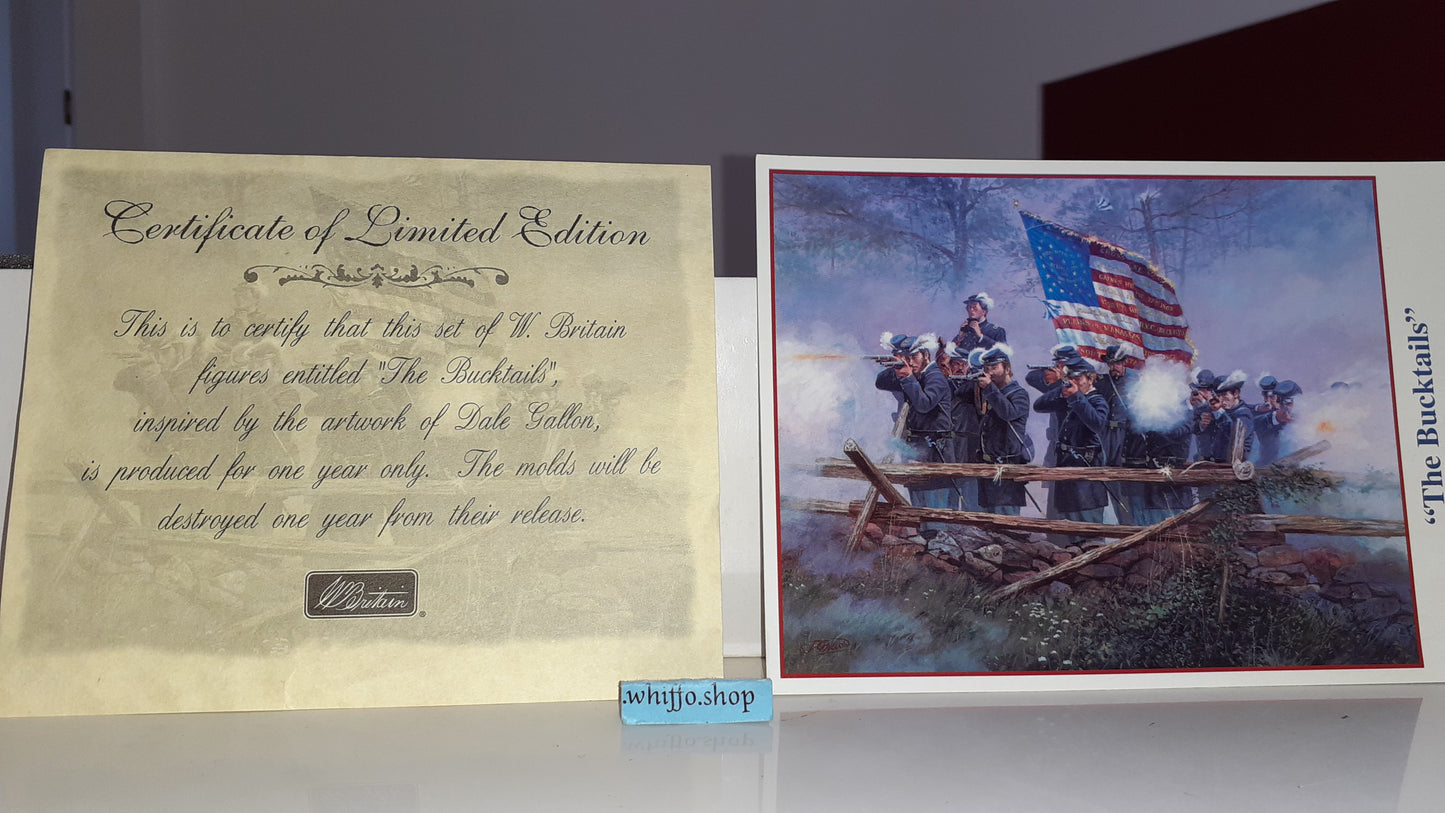 Certificate of Limited Edition
This is to certify that this set of W. Britain
figures entitled "The Bucktails",
inspired by the artwork of Dale Gallon,
is produced for one year only. The molds will be
destroyed one year from their release.
W Britain ®
.whiffo.shop
“The Bucktails”